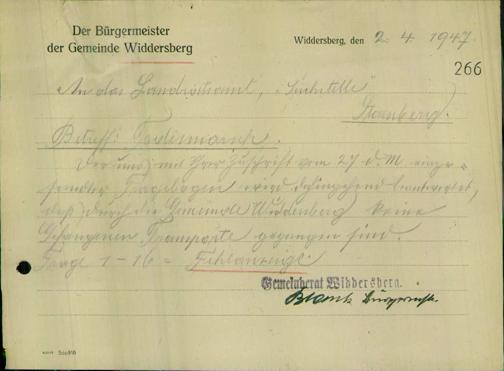 Der Bürgermeister
der Gemeinde Widdersberg
Widdersberg, den 2. 4. 1947.
266
An das Landratsamt, "Suchstelle"
Starnberg.
Betreff: Todesmarsch.
Der uns mit Ihrer Zuschrift vom 27. d. M. einge=
sendter Fragebogen wird dahingehend beantwortet,
daß durch die Gemeinde Widdersberg keine
Gefangenen Transporte gegangen sind.
Frage 1-16 = Fehlanzeige.
Gemeinderat Widdersberg.
Bürgermstr.